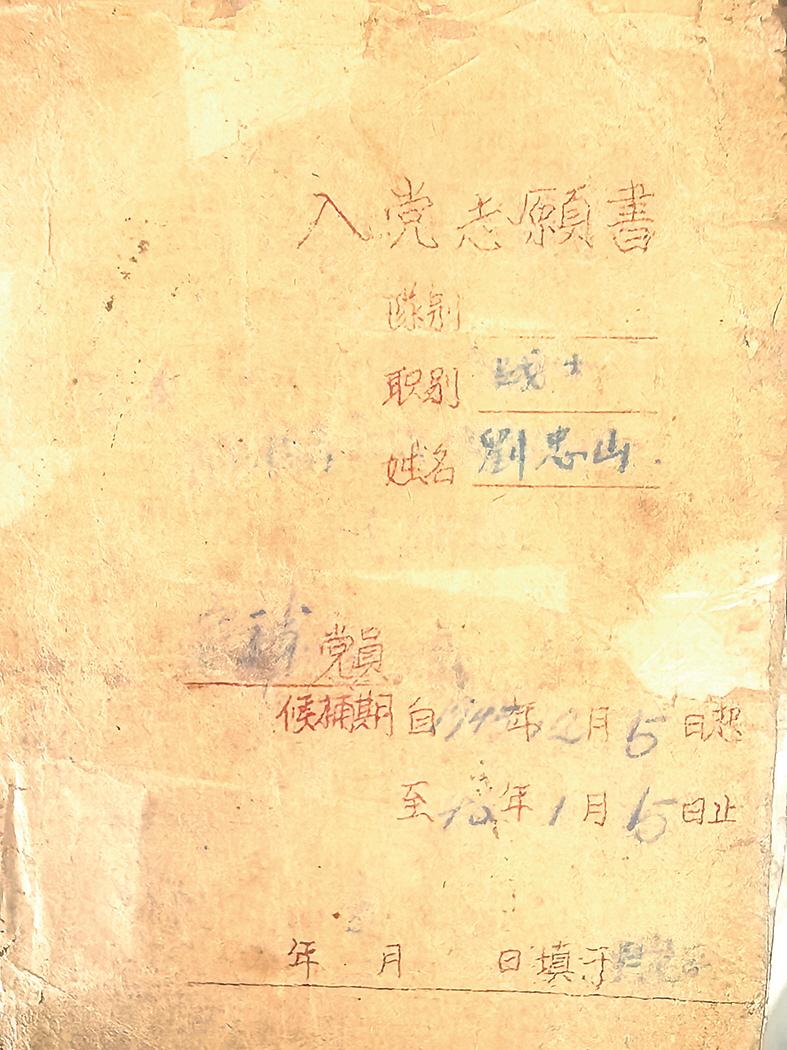 入党志願書
隊别
职别 战士
姓名 劉忠山.
党員
候補期自194年2月15日起
至年1月15日止
年 月 日填于